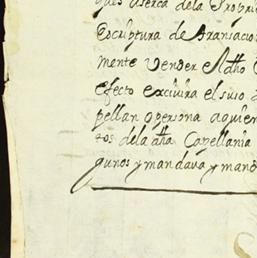 ques aserca dela Propri
Escriptura de transacion
mente Vender
efecto exciuira el suso
pellan o persona aquien
tos dela dha Capellania
gunos y mandava y mando